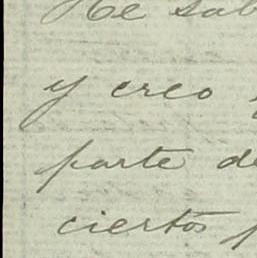 He sab
y creo
parte de
ciertos p